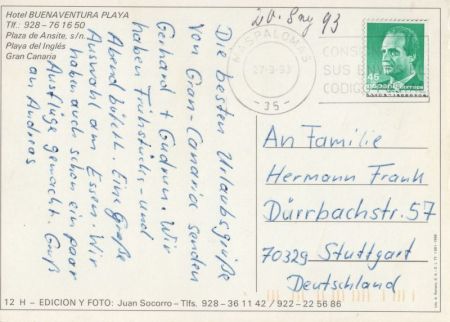 Hotel BUENAVENTURA PLAYA
Tlf.: 928 - 76 16 50
Plaza de Ansite, s/n.
Playa del Inglés
Gran Canaria
93
MASPALOMAS
27-9-93
- 35 -
CONS
SUS EN
CODIG
45
España correos
Die besten Urlaubsgrüße
von Gran-Canaria senden
Gerhard + Gudrun. Wir
haben Frühstücks- und
Abendbüfett. Eine große
Auswahl am Essen. Wir
haben auch schon ein paar
Ausflüge gemacht. Gruß
an Andreas
An Familie
Hermann Frank
Dürrbachstr. 57
70329 Stuttgart
Deutschland
12 H - EDICION Y FOTO: Juan Socorro - Tlfs. 928 - 36 11 42 / 922 - 22 56 86